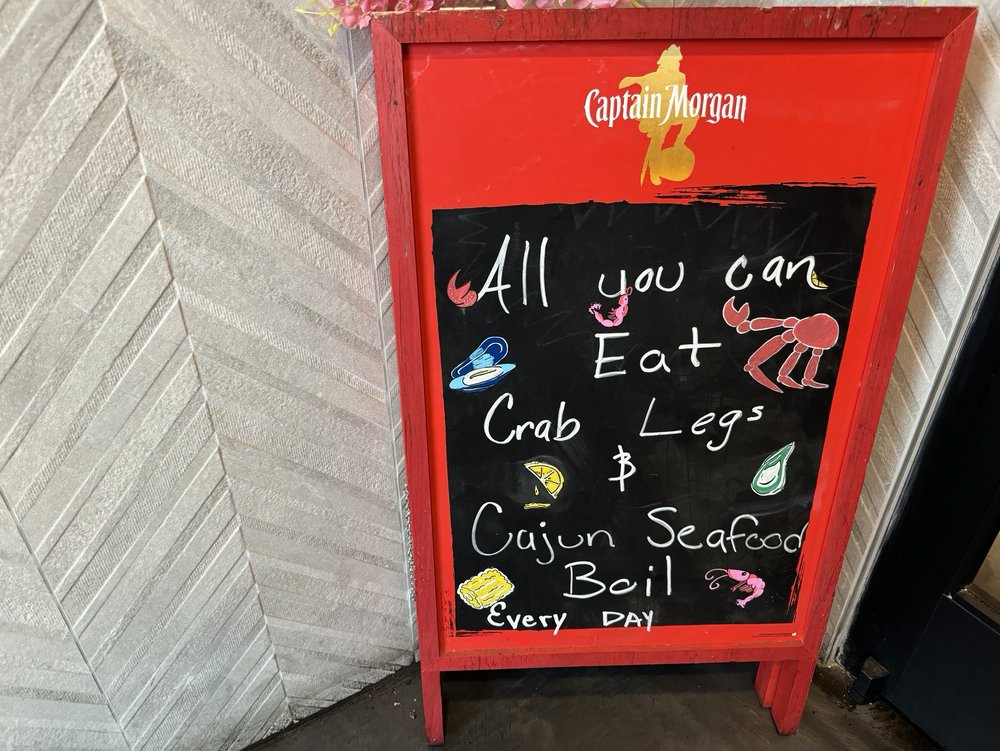 Captain Morgan
All you can
Eat
Crab Legs
&
Cajun Seafood
Boil
Every DAY